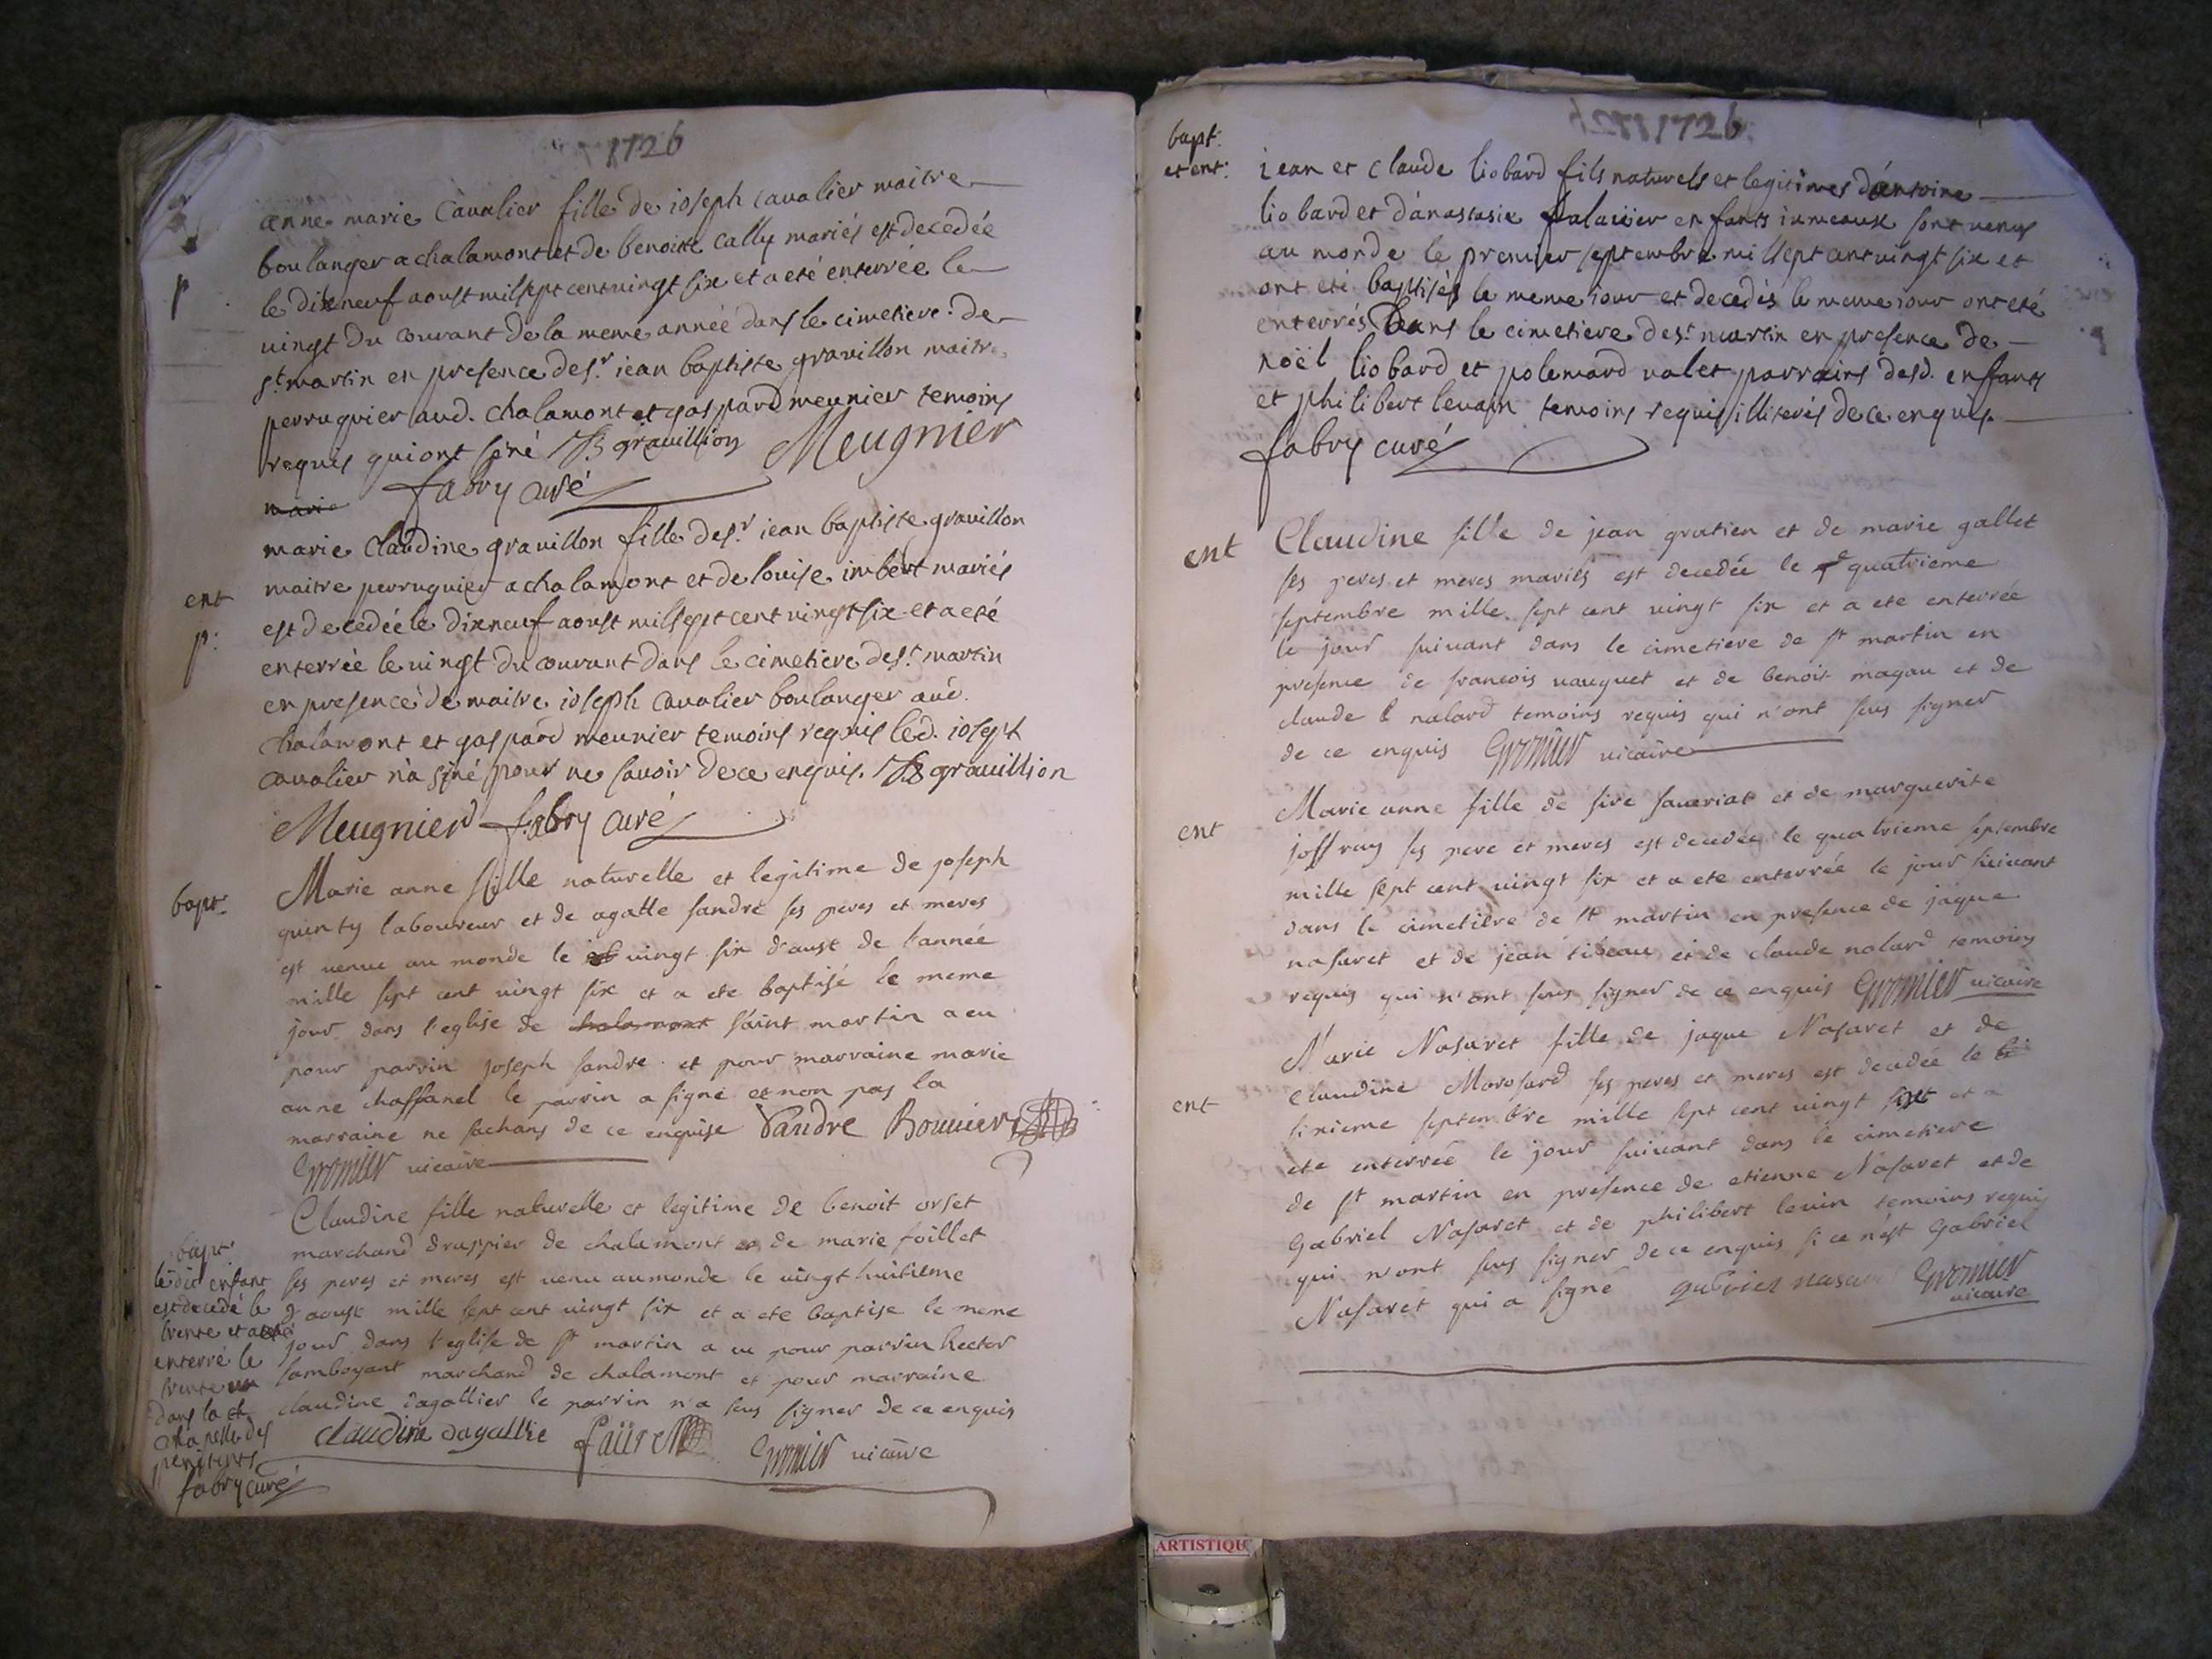 1726
anne marie Cavalier fille de ioseph cavalier maitre
boulanger a chalamont et de benoite cally mariés est decedée
le dixneuf aoust mil sept cent vingt six et a eté enterrée le
p
vingt du courant de la meme année dans le cimetiere de
st. martin en presence de sr. iean baptiste gravillon maitre
perruquier aud. chalamont et gaspard meunier temoins
requis qui ont siné JB gravillion Meugnier
marie fabry curé
marie Claudine gravillon fille de sr. iean baptiste gravillon
maitre perruquier a chalamont et de louise imbert mariés
ent
est decedée le dixneuf aoust mil sept cent vingt six et a eté
p.
enterrée le vingt du courant dans le cimetiere de st. martin
en presence de maitre ioseph cavalier boulanger aud.
chalamont et gaspard meunier temoins requis led. ioseph
cavalier n'a siné pour ne savoir de ce enquis. JB gravillion
Meugnier fabry curé
bapt.
Marie anne fille naturelle et legitime de joseph
quinty laboureur et de agatte sandre ses peres et meres
est venue au monde le vingt six d'aust de l'année
mille sept cent vingt six et a ete baptisé le meme
jour dans l'eglise de chalamont saint martin a eu
pour parrin joseph sandre et pour marraine marie
anne chaffanel le parrin a signé et non pas la
marraine ne sachans de ce enquise Sandre Bouvier
Gromier vicaire
Claudine fille naturelle et legitime de benoit orset
marchand drappier de chalamont et de marie foillet
ses peres et meres est venu au monde le vingt huitieme
d'aoust mille sept cent vingt six et a ete baptise le meme
jour dans l'eglise de st martin a eu pour parrin hector
lamboyant marchand de chalamont et pour marraine
claudine dagallier le parrin n'a seus signer de ce enquis
claudine dagallie faüre Gromier vicaire
bapt.
ledit enfant
est decedé le
trente et a eté
enterré le
trente un
dans la ch
chapelle des
penitents
fabry curé
1726
bapt.
et ent.
iean et claude liobard fils naturels et legitimes d'antoine
liobard et d'anastasie palavier enfants iumeaux sont venus
au monde le premier septembre mil sept cent vingt six et
ont eté baptisés le meme iour et decedés le meme iour ont eté
enterrés dans le cimetiere de st. martin en presence de
noël liobard et polemard valet parrains desd. enfants
et philibert levain temoins requis illiterés de ce enquis.
fabry curé
ent
Claudine fille de jean gratien et de marie gallet
ses peres et meres mariés est decedée le quatrieme
septembre mille sept cent vingt six et a ete enterrée
le jour suivant dans le cimetiere de st martin en
presence de francois vauquet et de benoit magau et de
claude nalard temoins requis qui n'ont seus signer
de ce enquis Gromier vicaire
ent
Marie anne fille de sire saveriat et de marguerite
joffray ses pere et meres est decedée le quatrieme septembre
mille sept cent vingt six et a ete enterrée le jour suivant
dans le cimetiere de st martin en presence de jaque
nasaret et de jean tibeau et de claude nalard temoins
requis qui n'ont seus signer de ce enquis Gromier vicaire
ent
Marie Nasaret fille de jaque Nasaret et de
claudine Morosard ses peres et meres est decedée le
sixieme septembre mille sept cent vingt six et a
ete enterrée le jour suivant dans le cimetiere
de st martin en presence de etienne Nasaret et de
Gabriel Nasaret et de philibert levin temoins requis
qui n'ont seus signer de ce enquis si ce n'est Gabriel
Nasaret qui a signé gabriel nasaret Gromier
vicaire
ARTISTIQU